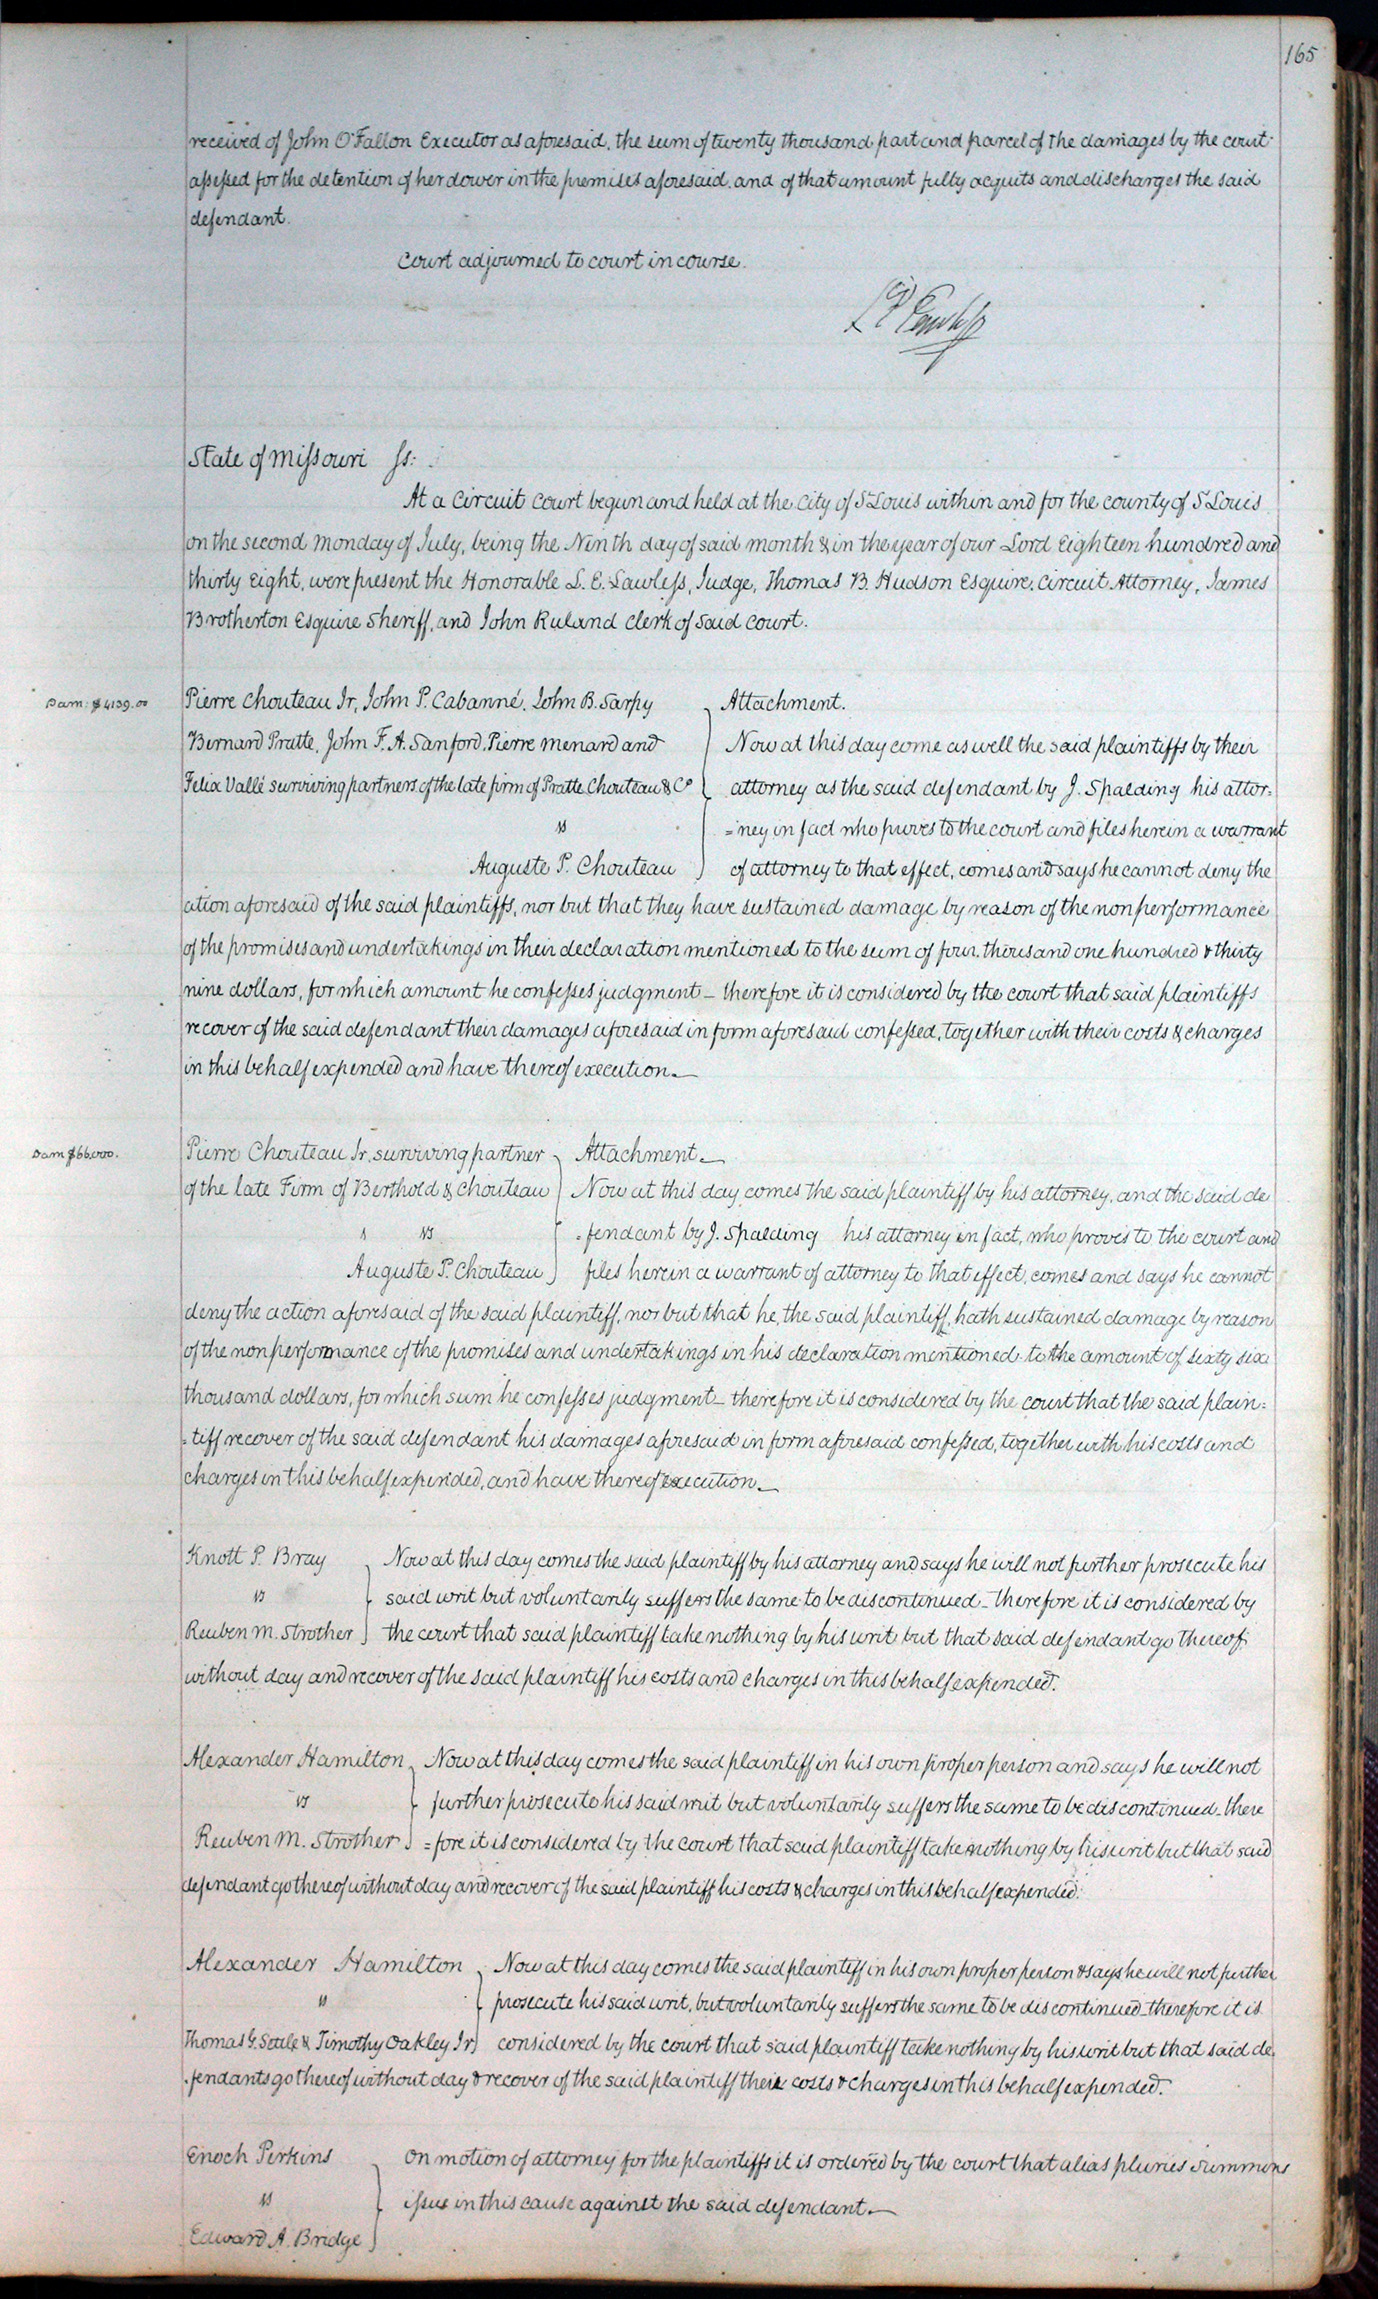 165
received of John O'Fallon Executor as aforesaid, the sum of twenty thousand part and parcel of the damages by the court
assessed for the detention of her dower in the premises aforesaid, and of that amount fully acquits and discharges the said
defendant.
Court adjourned to court in course.
L E Lawless
State of Missouri Ss:
At a Circuit Court begun and held at the City of St Louis within and for the county of St Louis
on the second Monday of July, being the Ninth day of said month & in the year of our Lord Eighteen hundred and
thirty Eight, were present the Honorable L. E. Lawless, Judge, Thomas B. Hudson Esquire, Circuit Attorney, James
Brotherton Esquire Sheriff, and John Ruland Clerk of said Court.
Dam: $4139.00
Pierre Chouteau Jr, John P. Cabanné, John B. Sarpy Attachment.
Bernard Pratte, John F. A. Sanford, Pierre Menard and Now at this day come as well the said plaintiffs by their
Felix Vallé surviving partners of the late firm of Pratte Chouteau & Co attorney as the said defendant by J. Spalding his attor=
vs =ney in fact who proves to the court and files herein a warrant
Auguste P. Chouteau of attorney to that effect, comes and says he cannot deny the
ation aforesaid of the said plaintiffs, nor but that they have sustained damage by reason of the nonperformance
of the promises and undertakings in their declaration mentioned to the sum of four thousand one hundred & thirty
nine dollars, for which amount he confesses judgment_ therefore it is considered by the court that said plaintiffs
recover of the said defendant their damages aforesaid in form aforesaid confessed, together with their costs & charges
in this behalf expended and have thereof execution._
Dam $66,000.
Pierre Chouteau Jr. surviving partner Attachment._
of the late Firm of Berthold & Chouteau Now at this day comes the said plaintiff by his attorney, and the said de
vs =fendant by J. Spalding his attorney in fact, who proves to the court and
Auguste P. Chouteau files herein a warrant of attorney to that effect, comes and says he cannot
deny the action aforesaid of the said plaintiff, nor but that he, the said plaintiff, hath sustained damage by reason
of the nonperformance of the promises and undertakings in his declaration mentioned to the amount of sixty six
thousand dollars, for which sum he confesses judgment_ therefore it is considered by the court that the said plain=
=tiff recover of the said defendant his damages aforesaid in form aforesaid confessed, together with his costs and
charges in this behalf expended, and have thereof execution._
Knott P. Bray Now at this day comes the said plaintiff by his attorney and says he will not further prosecute his
vs said writ but voluntarily suffers the same to be discontinued_ therefore it is considered by
Reuben M. Strother the court that said plaintiff take nothing by his writ but that said defendant go thereof
without day and recover of the said plaintiff his costs and charges in this behalf expended.
Alexander Hamilton Now at this day comes the said plaintiff in his own proper person and says he will not
vs further prosecute his said writ but voluntarily suffers the same to be discontinued_ there
Reuben M. Strother =fore it is considered by the court that said plaintiff take nothing by his writ but that said
defendant go thereof without day and recover of the said plaintiff his costs & charges in this behalf expended.
Alexander Hamilton Now at this day comes the said plaintiff in his own proper person & says he will not further
vs prosecute his said writ, but voluntarily suffers the same to be discontinued_ therefore it is
Thomas G. Settle & Timothy Oakley Jr considered by the court that said plaintiff take nothing by his writ but that said de
=fendants go thereof without day & recover of the said plaintiff their costs & charges in this behalf expended.
Enoch Perkins On motion of attorney for the plaintiffs it is ordered by the court that alias pluries summons
vs issue in this cause against the said defendant._
Edward A. Bridge